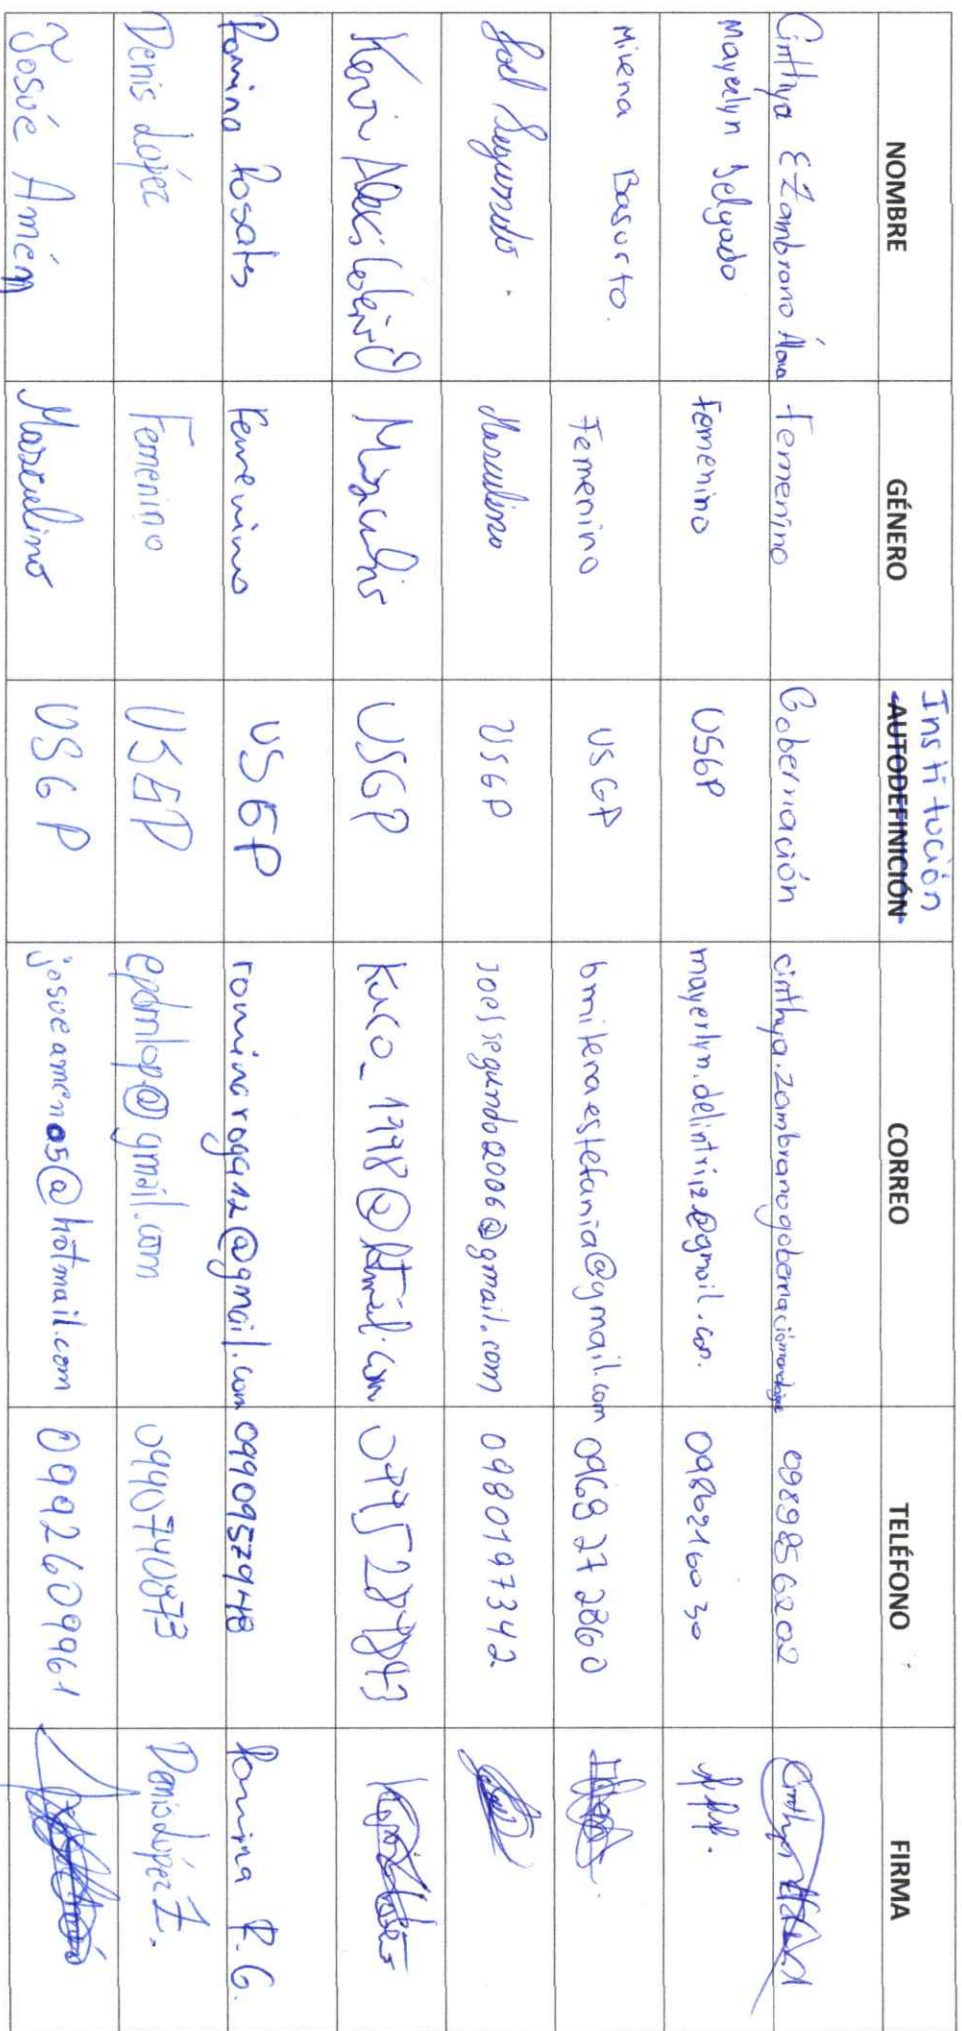 NOMBRE GÉNERO Institución AUTODEFINICIÓN CORREO TELÉFONO FIRMA
Cinthya E Zambrano Femenino Gobernación 0989856202
Mayerlyn Delgado Femenino USGP mayerlyn.delintri12@gmail.com. 0986216030
Milena Basurto. Femenino USGP bmilenaestefania@gmail.com 0969272860
Joel Segundo. Masculino USGP joelssegundo2006@gmail.com 0980197342
Kevin Alexis Masculino USGP
Romina Rosales Femenino USGP rominaroga12@gmail.com 0990957948 Romina R.G.
Denis López Femenino USGP epdmlop@gmail.com 0990740873 Denis López Z.
Josué Amén Masculino USGP josueamen05@hotmail.com 0992609961